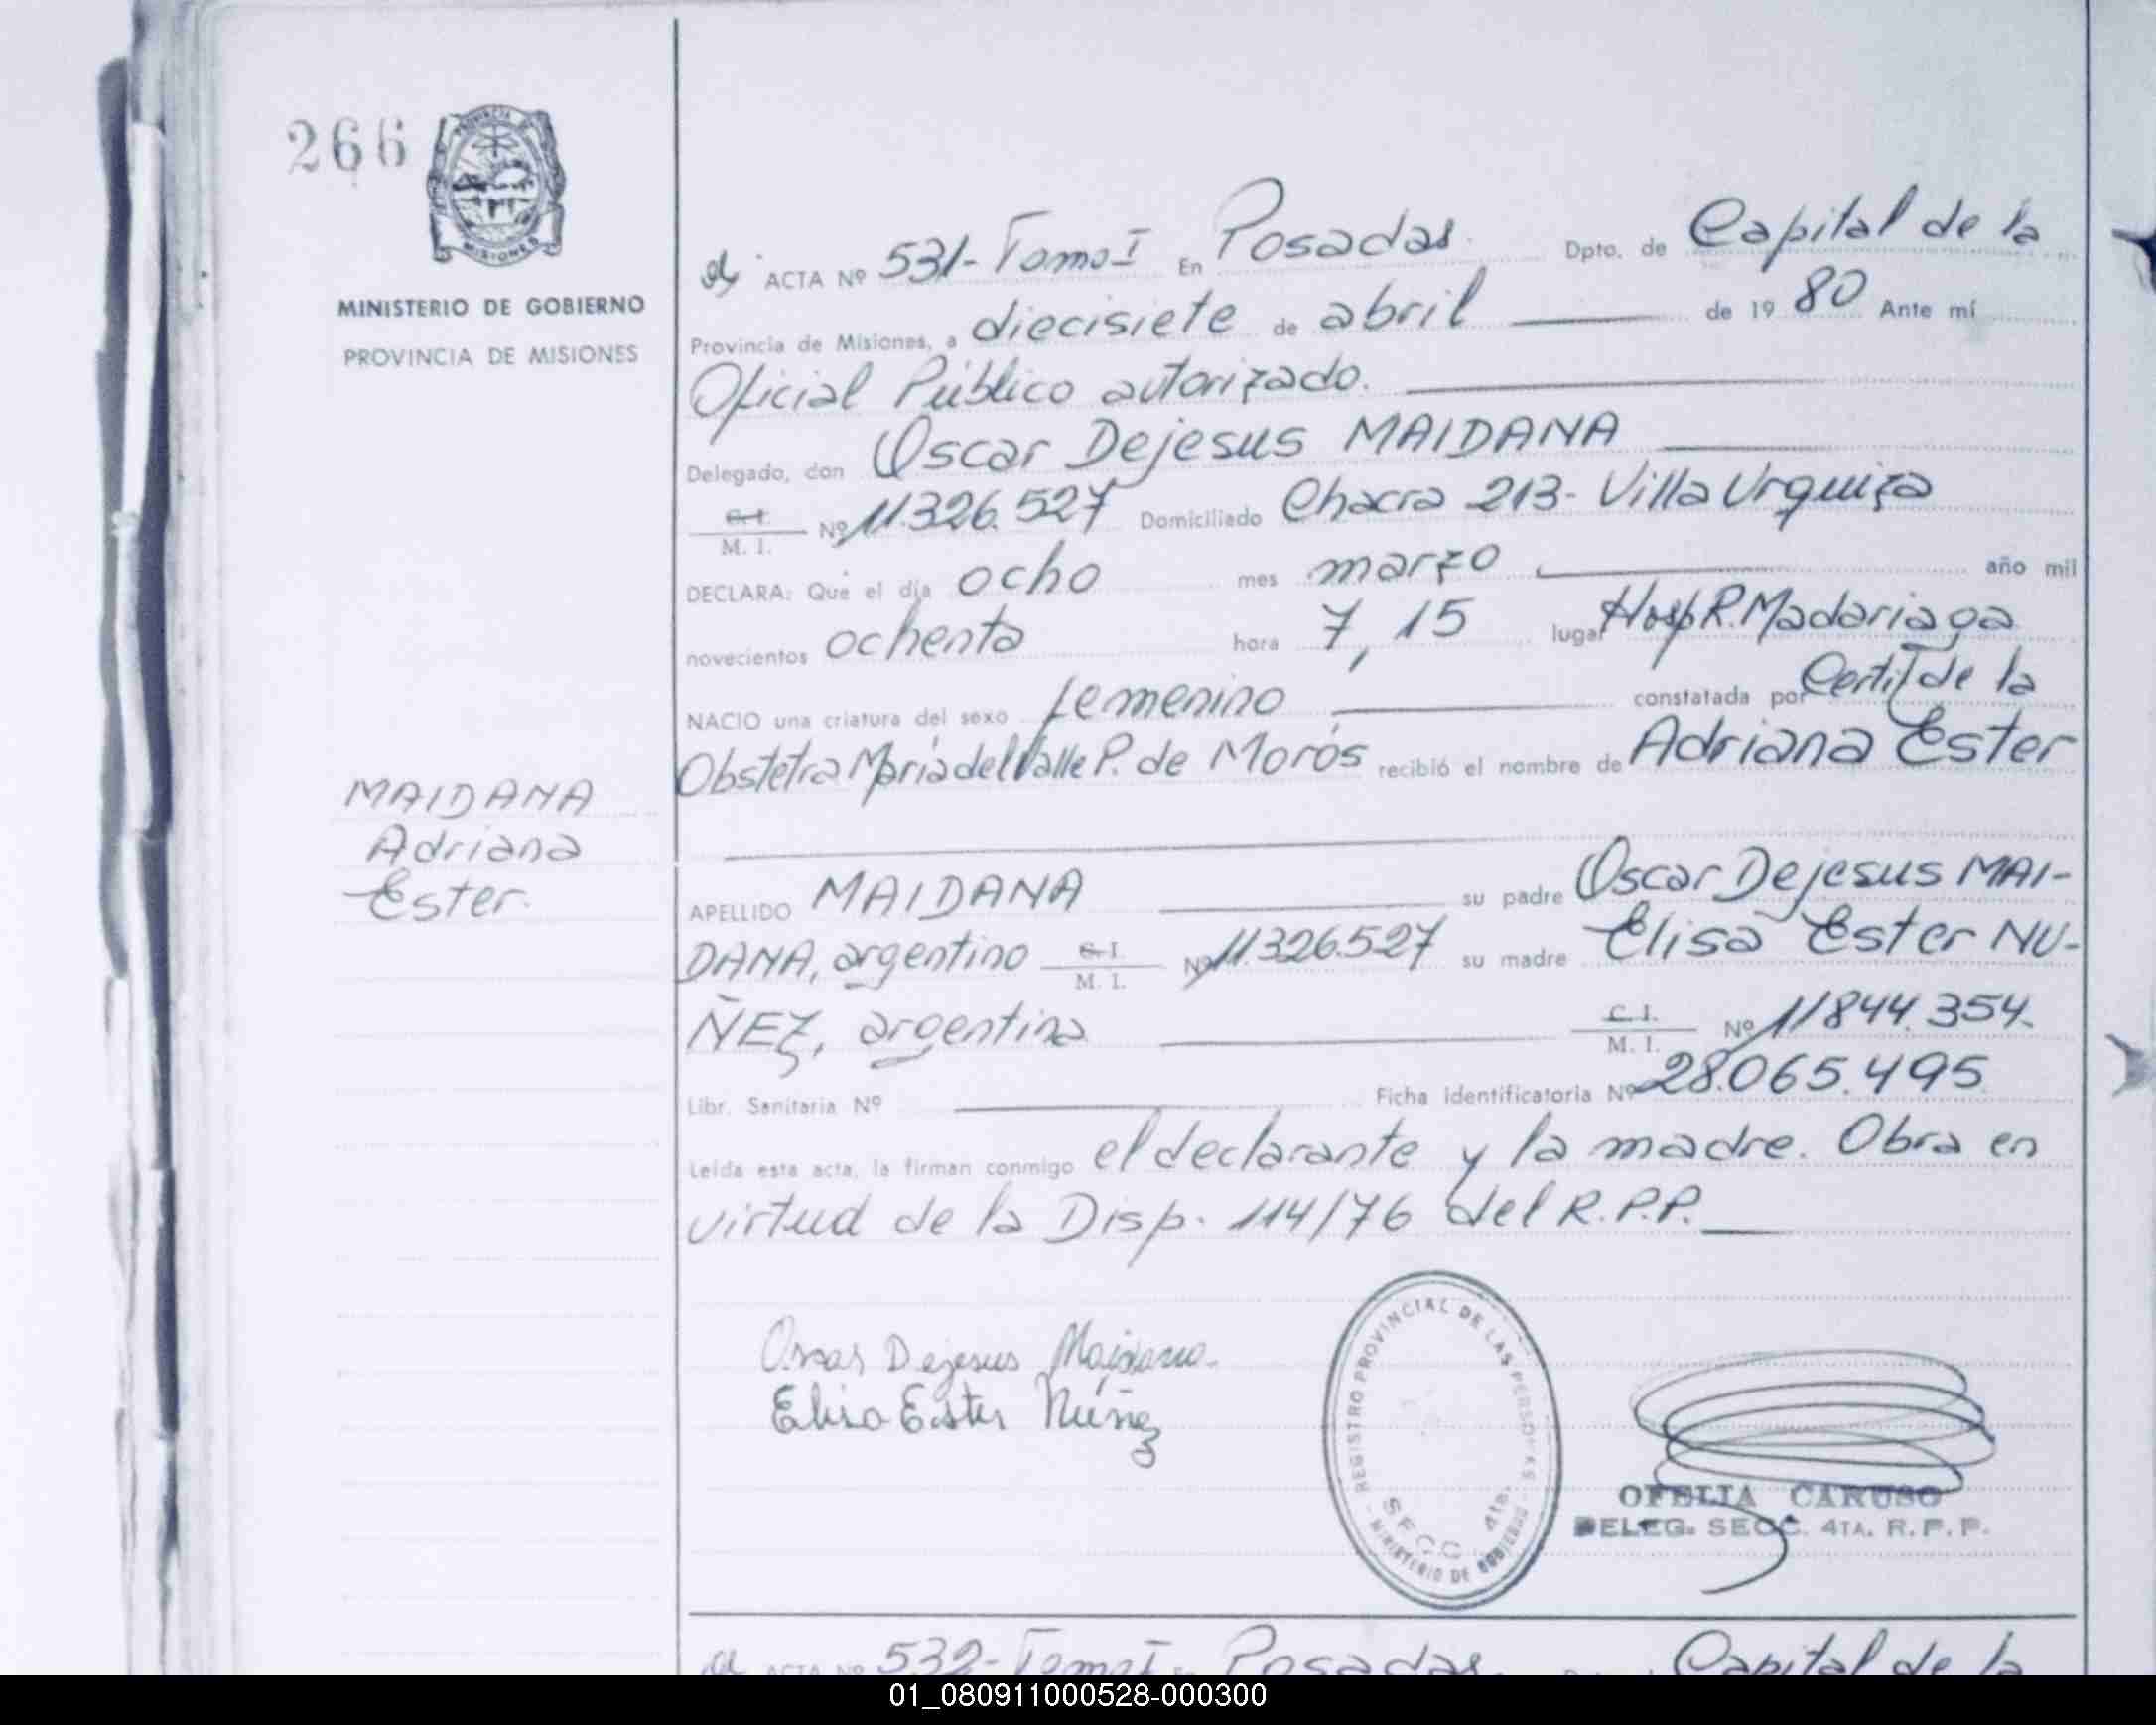 266
MINISTERIO DE GOBIERNO
PROVINCIA DE MISIONES
ACTA Nº 531- Tomo I En Posadas. Dpto. de Capital de la
Provincia de Misiones, a diecisiete de abril de 19 80 Ante mí
Oficial Público autorizado.
Delegado, don Oscar Dejesus MAIDANA
C.I. / M. I. Nº 11.326.527 Domiciliado Chacra 213- Villa Urquiza
DECLARA: Que el día ocho mes marzo año mil
novecientos ochenta hora 7,15 lugar Hosp R. Madariaga
NACIO una criatura del sexo femenino constatada por Certif de la
Obstetra María del Valle P. de Morós recibió el nombre de Adriana Ester
MAIDANA
Adriana
Ester.
APELLIDO MAIDANA su padre Oscar Dejesus MAI-
DANA, argentino C.I. / M. I. Nº 11.326.527 su madre Elisa Ester NU-
ÑEZ, argentina C.I. / M. I. Nº 11844.354.
Libr. Sanitaria Nº Ficha identificatoria Nº 28.065.495
Leída esta acta, la firman conmigo el declarante y la madre. Obra en
virtud de la Disp. 114/76 del R.P.P.
Oscar Dejesus Maidana
Elisa Ester Núñez
REGISTRO PROVINCIAL DE LAS PERSONAS
SECC. 4ta.
MINISTERIO DE GOBIERNO
OFELIA CARUSO
DELEG. SECC. 4TA. R. P. P.
ACTA Nº 532- Tomo I En Posadas. Capital de la
01_080911000528-000300